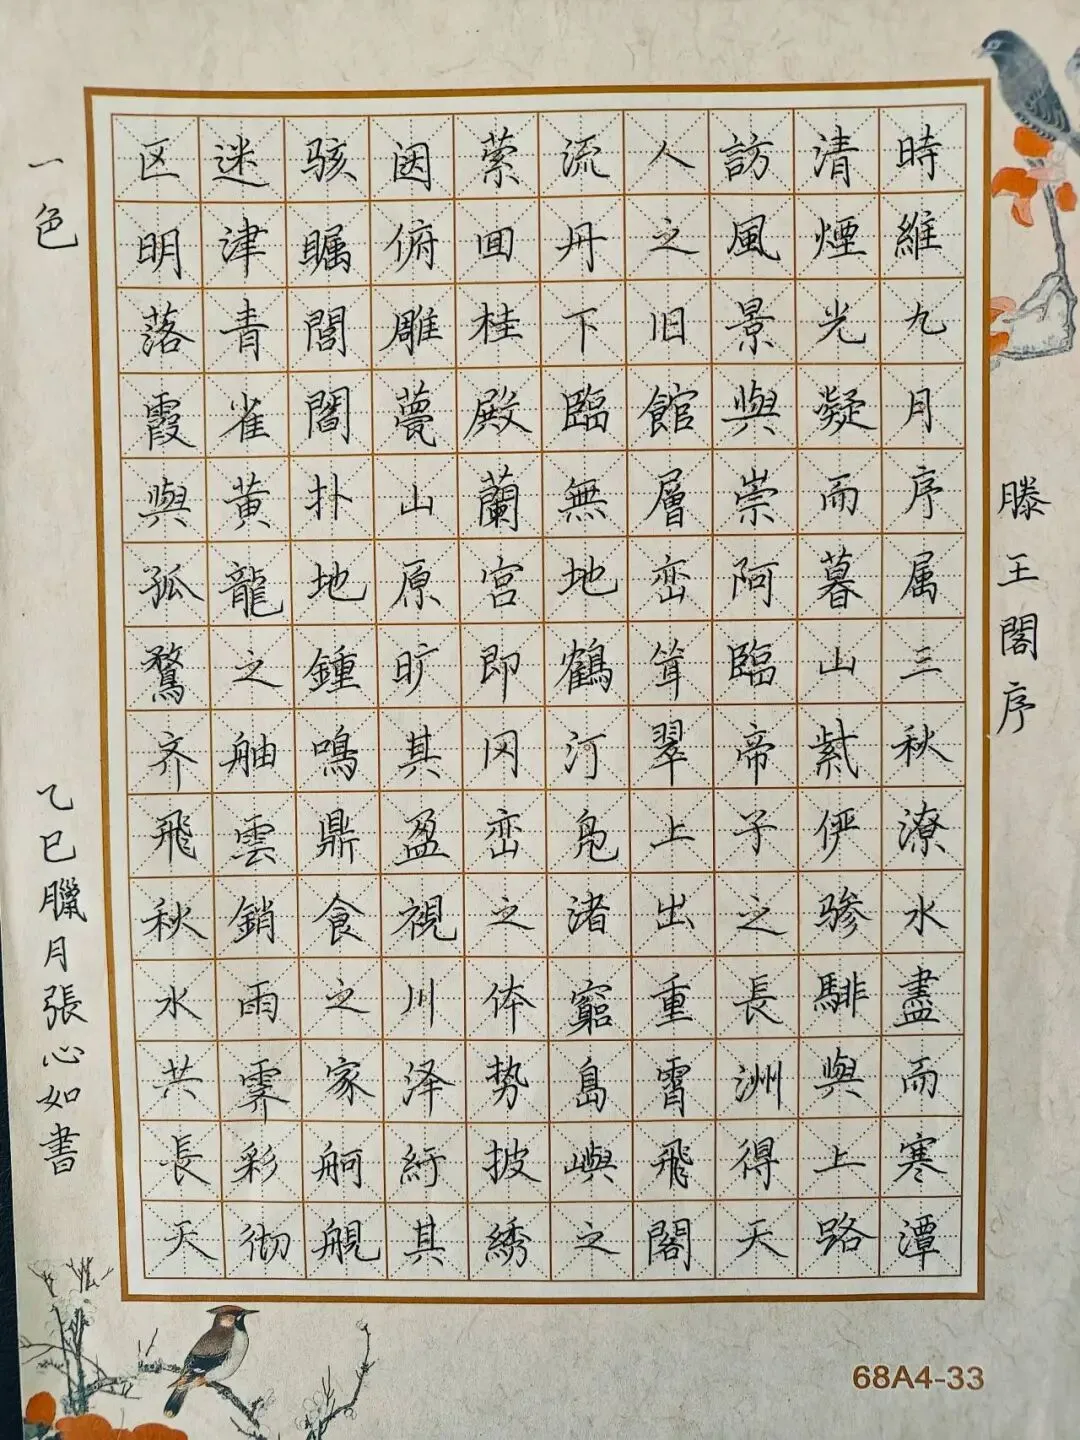 滕王閣序
時維九月序属三秋潦水盡而寒潭
清煙光凝而暮山紫伊骖騑與上路
訪風景與崇阿臨帝子之長洲得天
人之旧館層峦耸翠上出重霄飛閣
流丹下臨無地鶴汀凫渚窮島嶼之
萦回桂殿蘭宫即冈峦之体势披绣
闼俯雕甍山原旷其盈視川泽紆其
骇瞩閭閻扑地鍾鳴鼎食之家舸艦
迷津青雀黄龍之舳雲銷雨霁彩彻
区明落霞與孤鶩齐飛秋水共長天
一色
乙巳臘月張心如書
68A4-33